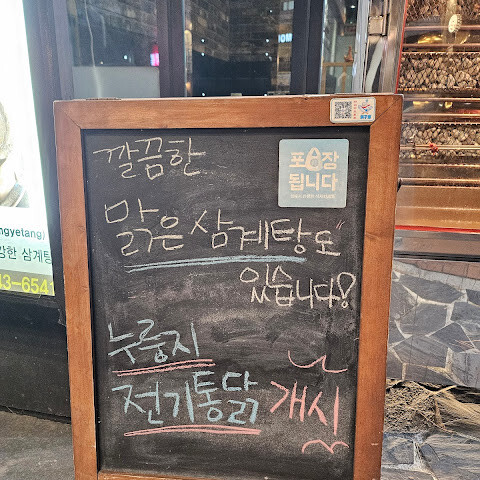 깔끔한
포장
됩니다
맑은 삼계탕도
있습니다!
누룽지
전기통닭 개시
ngyetang)
강한 삼계탕
43-6541